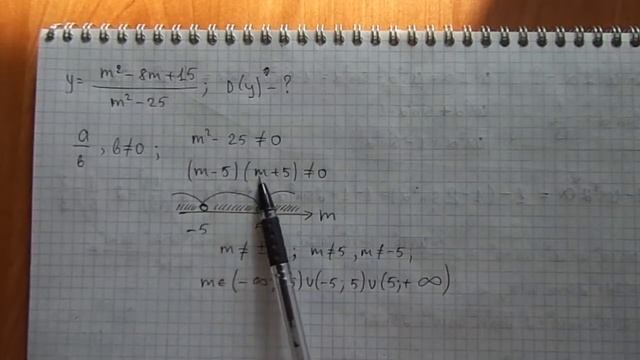 y = (m² - 8m + 15) / (m² - 25) ; D(y) - ?
a / b , b ≠ 0 ; m² - 25 ≠ 0
(m - 5) (m + 5) ≠ 0
-5 m
m ≠ ± ; m ≠ 5 , m ≠ -5 ;
m ∈ (- ∞ 5) ∪ (-5 ; 5) ∪ (5 ; + ∞)